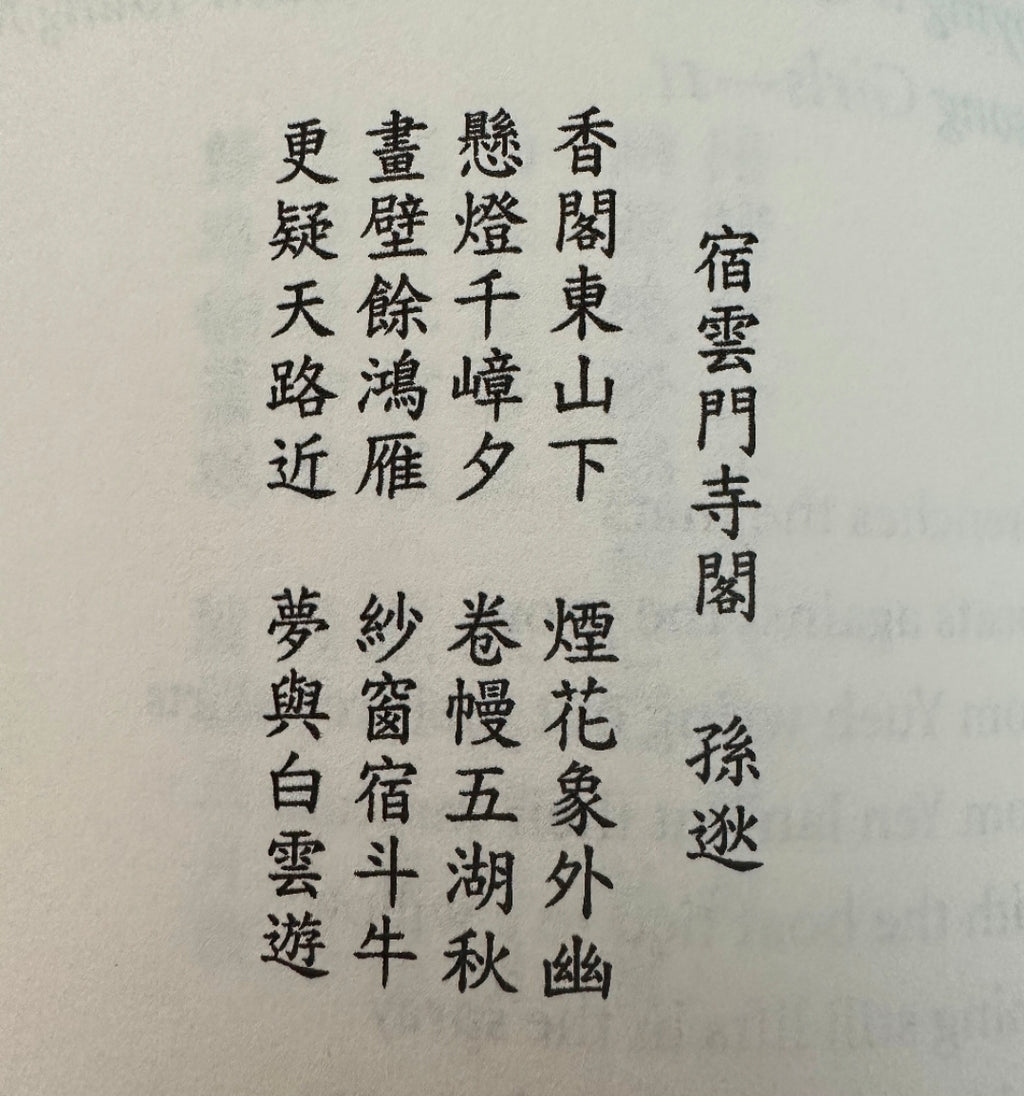 宿雲門寺閣 孫逖
香閣東山下 煙花象外幽
懸燈千嶂夕 卷幔五湖秋
畫壁餘鴻雁 紗窗宿斗牛
更疑天路近 夢與白雲遊